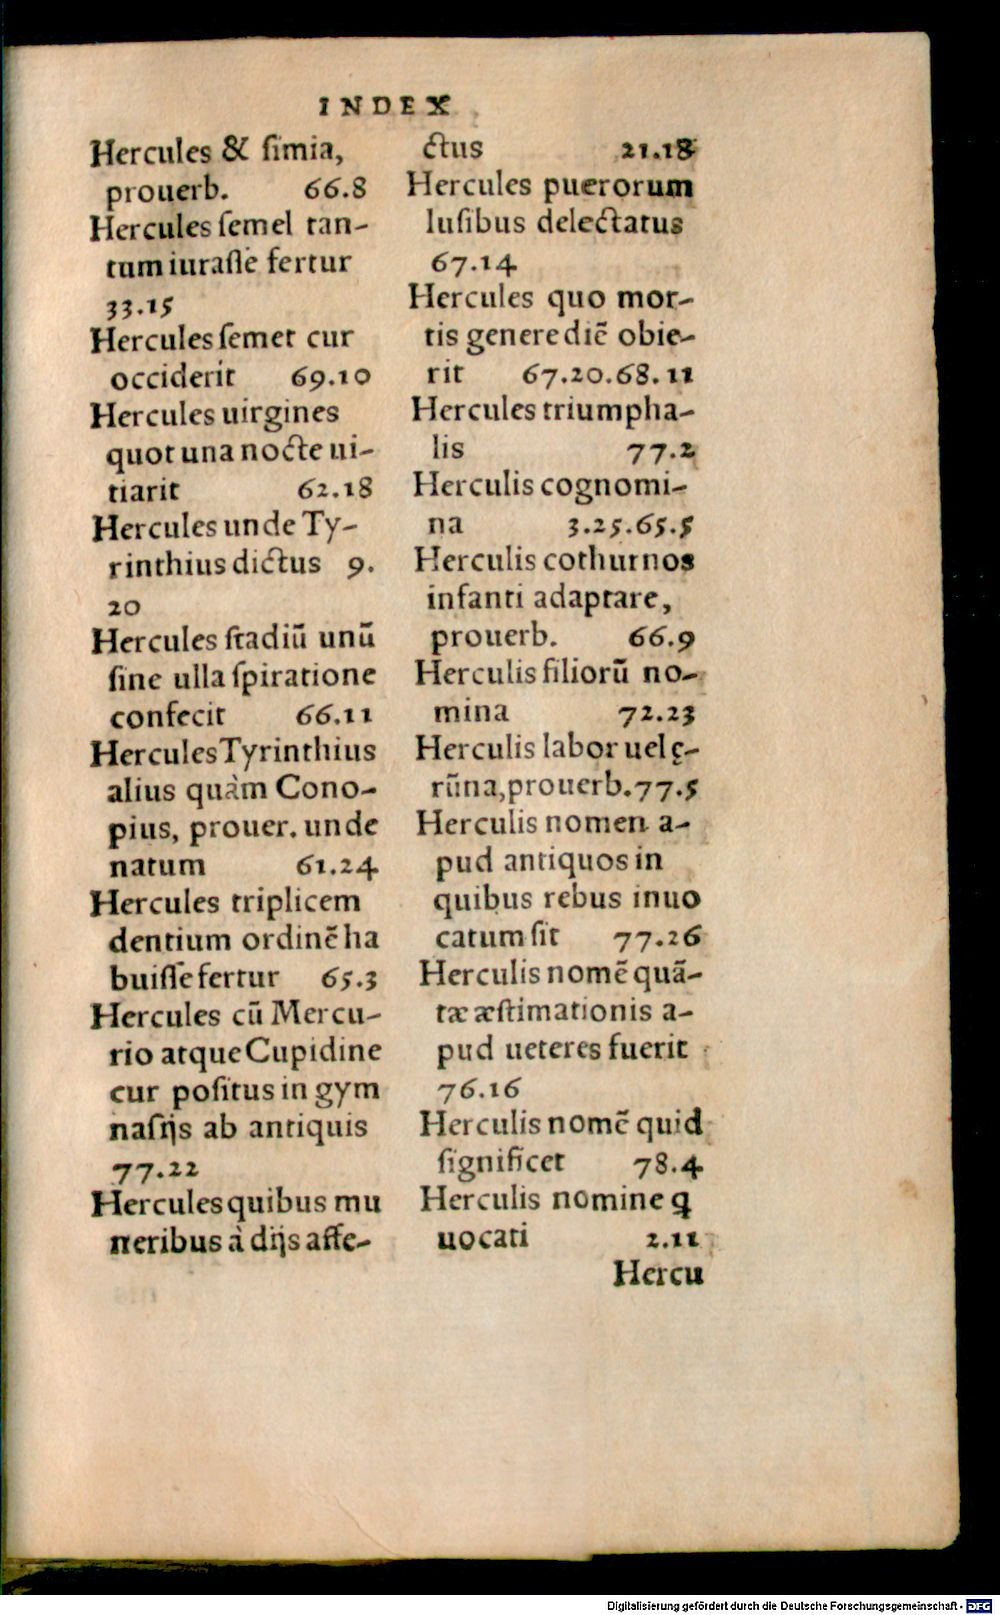 INDEX
Hercules & ſimia,
prouerb. 66.8
Hercules ſemel tan-
tum iuraſſe fertur
33.15
Hercules ſemet cur
occiderit 69.10
Hercules uirgines
quot una nocte ui-
tiarit 62.18
Hercules unde Ty-
rinthius dictus 9.
20
Hercules ſtadiũ unũ
ſine ulla ſpiratione
confecit 66.11
Hercules Tyrinthius
alius quàm Cono-
pius, prouer. unde
natum 61.24
Hercules triplicem
dentium ordinẽ ha
buiſſe fertur 65.3
Hercules cũ Mercu-
rio atque Cupidine
cur poſitus in gym
naſijs ab antiquis
77.22
Hercules quibus mu
neribus à dijs affe-
ctus 21.18
Hercules puerorum
luſibus delectatus
67.14
Hercules quo mor-
tis genere diẽ obie-
rit 67.20.68.11
Hercules triumpha-
lis 77.2
Herculis cognomi-
na 3.25.65.5
Herculis cothurnos
infanti adaptare,
prouerb. 66.9
Herculis filiorũ no-
mina 72.23
Herculis labor uel ę-
rũna, prouerb. 77.5
Herculis nomen a-
pud antiquos in
quibus rebus inuo
catum ſit 77.26
Herculis nomẽ quã-
tæ æſtimationis a-
pud ueteres fuerit
76.16
Herculis nomẽ quid
ſignificet 78.4
Herculis nomine ꝗ
uocati 2.11
Hercu
Digitalisierung gefördert durch die Deutsche Forschungsgemeinschaft - DFG